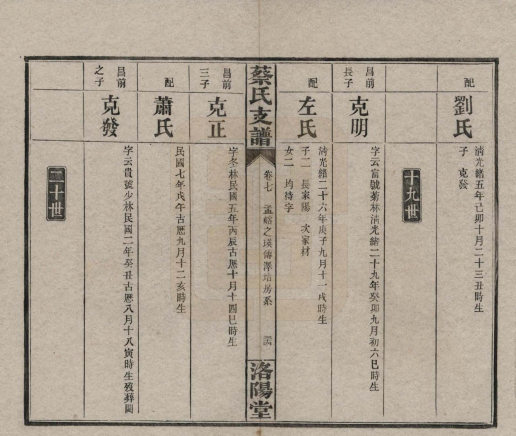 配
劉氏
清光緒五年己卯十月二十三丑時生
子 克發
十九世
昌前
長子
克明
字云富號菊林清光緒二十九年癸卯九月初六巳時生
配
左氏
清光緒二十六年庚子九月十一戌時生
子二 長家陽 次家材
女二 均待字
蔡氏支譜
卷七
洛陽堂
昌前
三子
克正
字冬林民國五年丙辰古歷十月十四巳時生
配
蕭氏
民國七年戊午古歷九月十二亥時生
昌前
之子
克發
字云貴號少林民國二年癸丑古歷八月十八寅時生歿葬闕
二十世